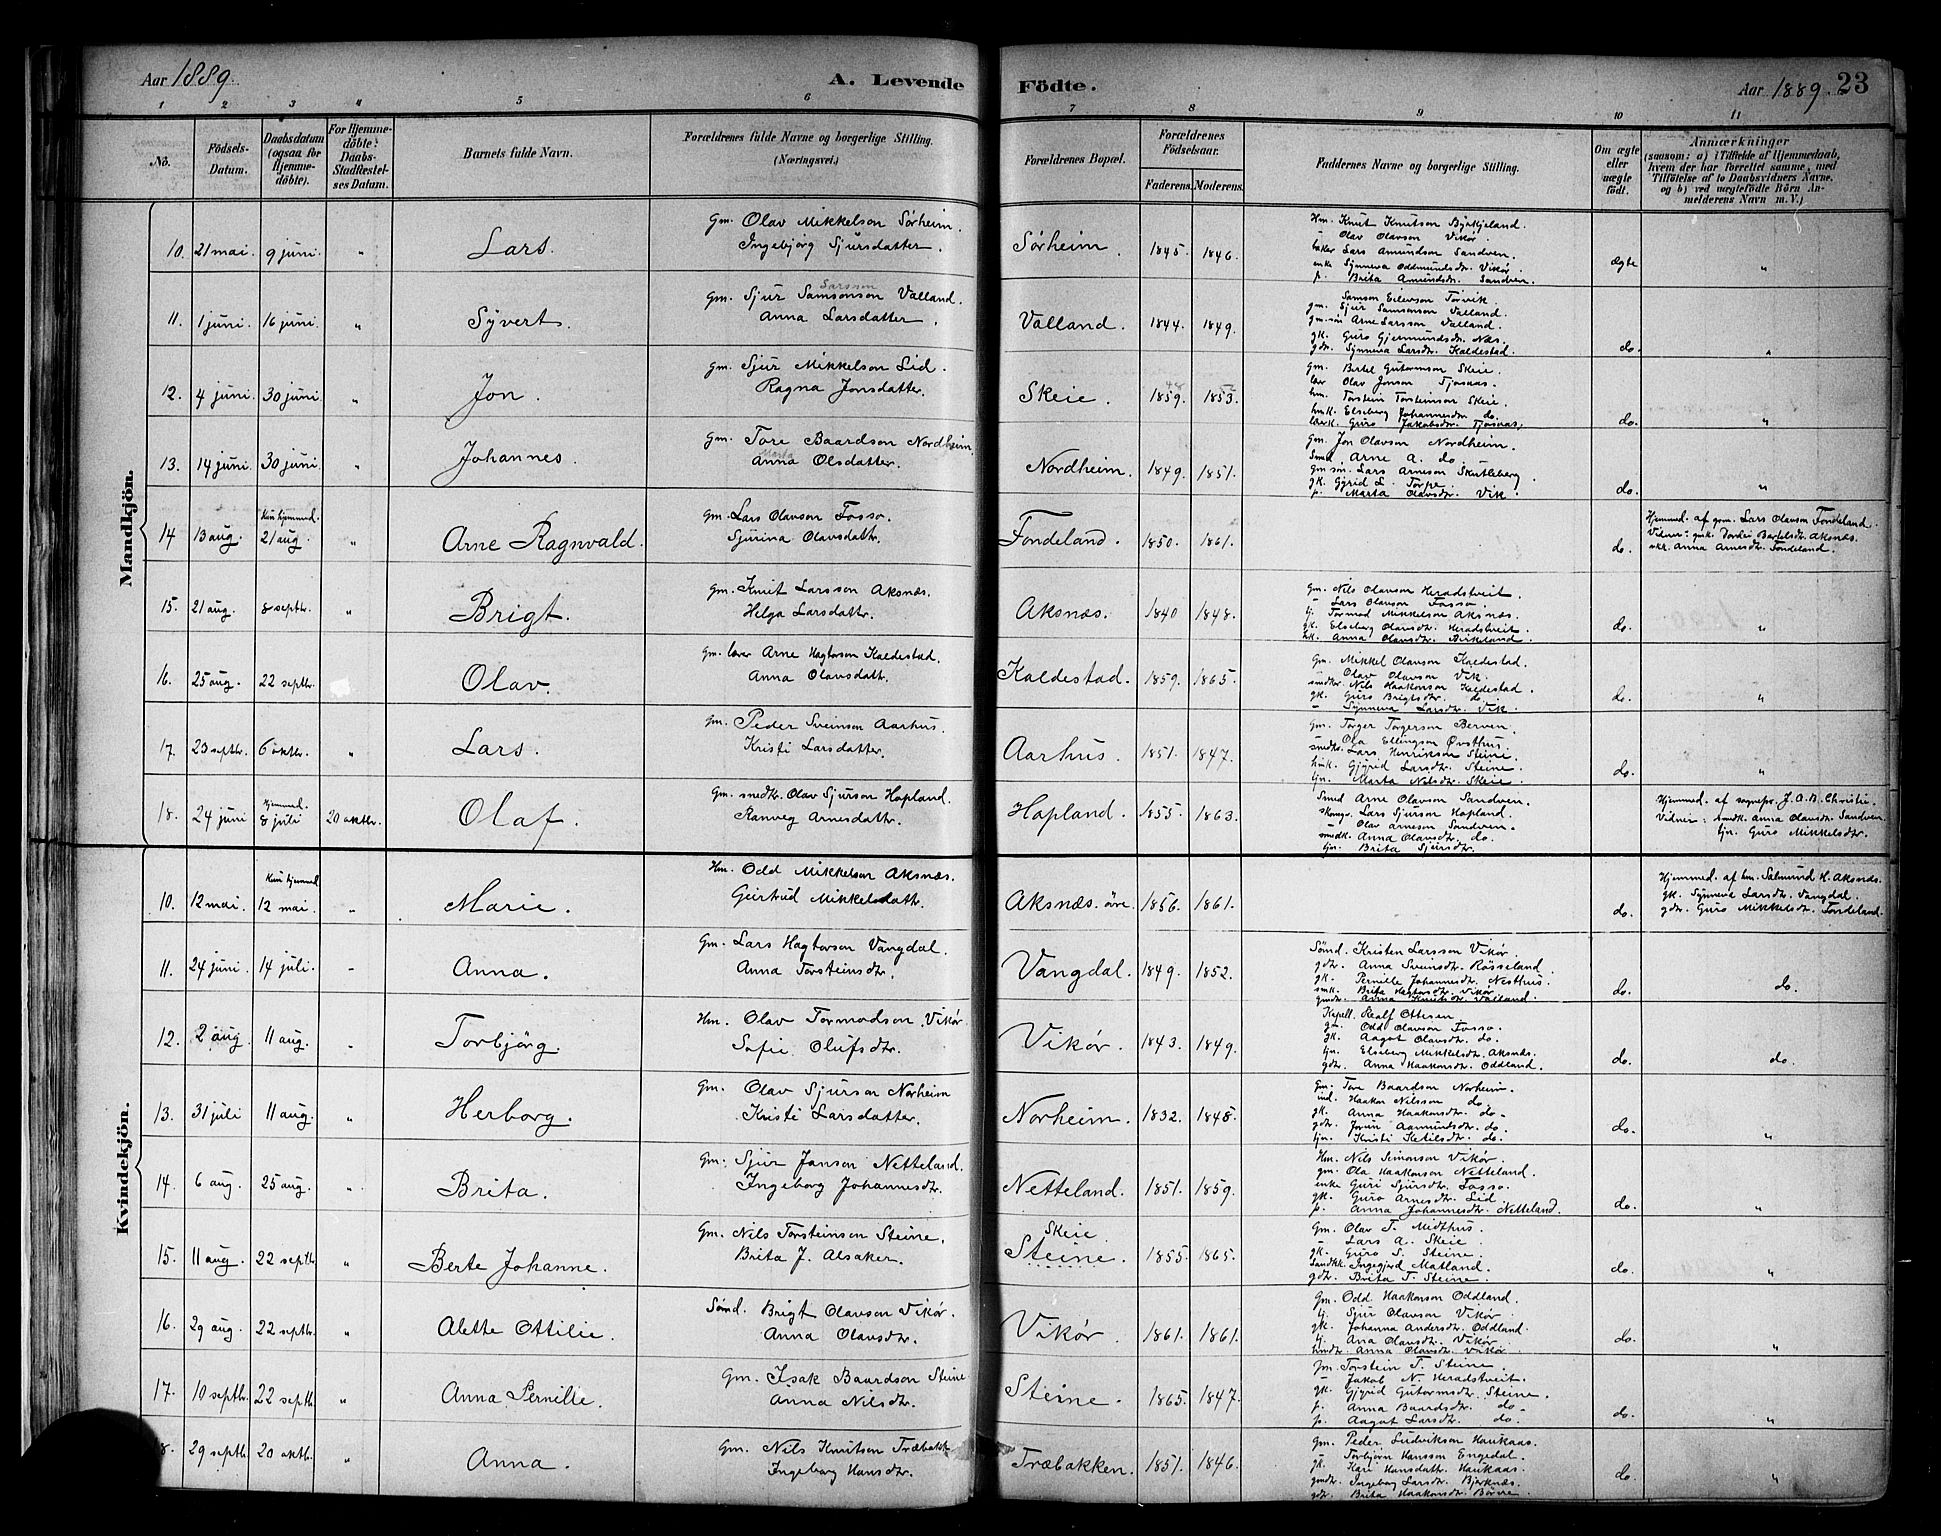 Aar 1889.
A. Levende Födte.
Aar 1889. 23
1 2 3 4 5 6 7 8 9 10 11
No.
Födsels-Datum.
Daabsdatum (ogsaa for Hjemme-döbte).
For Hjemme-döbte: Daabs-Stadfæstel-ses Datum.
Barnets fulde Navn.
Forældrenes fulde Navne og borgerlige Stilling. (Næringsvei.)
Forældrenes Bopæl.
Forældrenes Födselsaar.
Faderens. Moderens.
Faddernes Navne og borgerlige Stilling.
Om ægte eller uægte födt.
Anmærkninger (saasom: a) i Tilfælde af Hjemmedaab, hvem der har forrettet samme, med Tilföielse af to Daabsvidners Navne, og b) ved uægtefödte Börn An-melderens Navn m. V.)
Mandkjön.
10. 21 mai. 9 juni. " Lars.
Gm. Olav Mikkelson Sørheim.
Ingebjørg Sjursdatter.
Sørheim. 1845. 1846.
Hm. Knut Knutson Byrkjeland.
- Olav Olavson Vikør.
Lars Amundson Sandven.
enke Synneva Oddmundsdr. Vikør.
p. Brita Amundsdr. Sandven.
ægte "
11. 1 juni. 16 juni. " Syvert.
Gm. Sjur Samsonson Valland.
Larsson
Anna Larsdatter.
Valland. 1844. 1849.
Samson Eilevson Torvik.
gm. Sjur Samsonson Valland.
gm. søn Arne Larsson Valland.
gk. Guro Gjermundsdr. Næs.
gdr. Synneva Larsdr. Kaldestad.
do. "
12. 4 juni. 30 juni. " Jon.
Gm. Sjur Mikkelson Lid.
Ragna Jonsdatter.
Skeie. 1859. 1853.
48 52
gm. Botel Gutormson Skeie.
lær Olav Jonson Tjosaas.
hm. Torstein Torsteinson Skeie.
hmk. Elseberg Johannesdr. do.
lærk. Guro Jakobsdr. Tjosaas.
do. "
13. 14 juni. 30 juni. " Johannes.
Gm. Tore Baardson Nordheim
Marta
Anna Olsdatter.
Nordheim. 1849. 1851.
Gm. Jon Olavson Nordheim.
Smed Arne A. do.
gm søn. Lars Arneson Skutleberg.
gk. Gyrid L. Torpe.
p. Marta Olavsdr. Vik.
do. "
14 13 aug. Kun hjemmed. 21 aug. " Arne Ragnvald.
Gm. Lars Olavson Fosso.
Sjurina Olavsdatr.
Fondeland. 1850. 1861.
do.
Hjemmed. af gm. Lars Olavson Fondeland.
Vidner: gmk. Dordei Bartelsdr. Aksnæs.
Anna Arnesdr. Fondeland.
15. 21 aug. 8 septbr. " Brigt.
Gm. Knut Larsson Aksnæs.
Helga Larsdattr.
Aksnæs. 1840 1848.
Gm. Nils Olavson Heradstveit.
- Lars Olavson Fosso.
tj. Tormod Mikkelson Aksnæs.
gk. Elseberg Olavsdr. Heradstveit.
hk. Anna Olavsdr. Birkeland.
do. "
16. 25 aug. 22 septbr. Olav.
Gm. lærer Arne Hagtorson Kaldestad.
Anna Olavsdatr.
Kaldestad. 1859. 1865.
Gm. Mikkel Olavson Kaldestad.
Olav Olavson Vik.
smedkr. Nils Haakonson Kaldestad.
gk. Guro Brigtsdr. do.
- Synneva Larsdr. Vik.
do. "
17. 23 septbr. 6 oktbr. " Lars.
Gm. Peder Sveinson Aarhus.
Kristi Larsdatter.
Aarhus. 1851. 1847.
Gm. Torger Torgerson Berven.
Ola Ellingson Øvsthus.
smedkr. Lars Henrikson Steine.
hmk. Gjyrid Larsdr. Steine.
tjn. Marta Nilsdr. Skeie.
do. "
18. 24 juni Hjemmed. 8 juli 20 oktbr. Olaf.
Gm. smedkr. Olav Sjurson Hopland.
Ranveg Arnesdatr.
Hopland. 1855. 1863.
Smed Arne Olavson Sandven.
Lars Sjurson Hopland.
Olav Arneson Sandven.
smedk. Anna Olavsdr. do.
tjn. Brita Sjursdr.
Hjemmed. af sognepr. J.O.B. Christie.
Vidner: smedk. Anna Olavsdr. Sandven
tjn. Guro Mikkelsdr.
Kvindekjön.
10. 12 mai. Kun hjemmed 12 mai. " Marie.
Hm. Odd Mikkelson Aksnæs.
Geirtrud Mikkelsdatr.
Aksnæs. øvre. 1856. 1861.
do.
Hjemmed. af hm. Salmund H. Aksnæs.
gk. Synneva Larsdr. Vangdal.
gdr. Guro Mikkelsdr. Fondeland.
11. 24 juni. 14 juli. - Anna.
Gm. Lars Hagtorson Vangdal.
Anna Torsteinsdtr.
Vangdal. 1849. 1852.
Sømd. Kristen Larsson Vikør.
gdr. Anna Sveinsdtr. Røsseland.
gk. Pernille Johannesdr. Nesthus.
smk. Brita Hagtorsdtr. Vikør
gmdr. Anna Knutsdtr. Valland.
do. do.
12. 2 aug. 11 aug. - Torbjörg.
Hm. Olav Tormodson Vikør.
Sofie Olufsdtr.
Vikør. 1843. 1849.
Kapell. Realf Ottesen
gm. Odd Olavson Fosso.
gk. Aagot Olavsdtr. do.
tjn. Elseberg Mikkelsdtr. Aksnæs.
gdr. Anna Haakonsdtr. Oddland.
do. do.
13. 31 juli 11 aug. " Herborg.
Gm. Olav Sjurson Norheim
Kristi Larsdatter.
Norheim. 1832. 1848.
Gm. Tore Baardson Norheim.
ind. Haakon Nilsson do.
gk. Anna Haakonsdtr. do.
gdr. Jorun Aamundsdtr. do
tjn. Kristi Ketilsdtr. do.
do. "
14. 6 aug. 25 aug. " Brita.
Gm. Sjur Janson Netteland.
Ingeborg Johannesdtr.
Netteland. 1851. 1859.
Hm. Nils Simonson Vikør.
gm. Ola Haakonson Netteland.
enke Guri Sjursdtr. Fosso.
gk. Guro Arnesdtr. Lid.
p. Anna Johannesdtr. Netteland.
do. "
15. 11 aug. 22 septbr. " Berte Johanne.
Gm. Nils Torsteinson Steine.
Brita J. Alsaker.
Skeie
Steine. 1855. 1865.
Gm. Olav T. Midthus.
- Lars A. Skeie.
gk. Guro S. Steine.
Ingegjerd Matland.
gdr. Brita T. Steine.
do. "
16. 29 aug. 22 septbr. " Alette Ottilie.
Sømd. Brigt Olavson Vikør.
Anna Olavsdtr.
Vikør. 1861. 1861.
Gm. Odd Haakonson Oddland.
tj. Sjur Olavson Vikør.
gk. Johanna Andersdtr. Oddland.
tj. Ana Olavsdtr. Vikør.
Anna Olavsdtr. Vikør
do. "
17. 10 septbr. 22 septbr. " Anna Pernille.
Gm. Isak Baardson Steine
Anna Nilsdtr.
Steine. 1865. 1847.
Gm. Torstein T. Steine.
- Jakob N. Heradstveit.
gk. Gjyrid Gutormsdtr. Steine.
p. Anna Baardsdtr. do.
p. Aagot Larsdtr. do.
do. "
8. 29 septbr. 20 oktbr. " Anna.
Gm. Nils Knutson Træbakk
Ingeborg Hansdtr.
Træbakken. 1851. 1846.
Gm. Peder Ludvikson Haukaas.
Torbjørn Hansson Engedal.
gk. Kari Hansdatr. Haukaas.
gmdr. Ingeborg Larsdtr. Bjerknæs.
gdr. Brita Haakonsdtr. Børve.
do. "